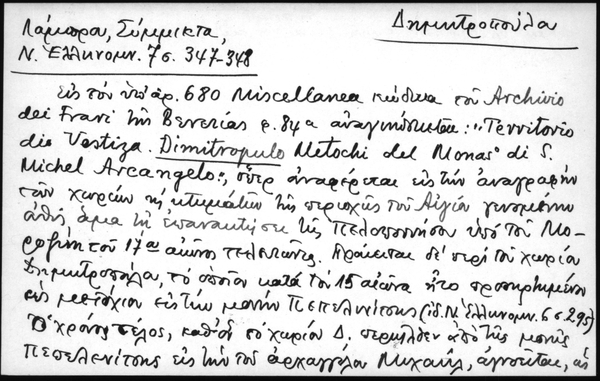 Δημητροπούλα
Λάμπρου, Σύμμικτα,
Ν. Ἑλληνομν. 7 σ. 347-348
Εἰς τὸν ὑπ' ἀρ. 680 Miscellanea κώδικα τοῦ Archivio
dei Frari τῆς Βενετίας φ. 84α ἀναγινώσκεται: "Territorio
die Vostiza. Dimitropulo Metochi del Monas° di S.
Michel Arcangelo", ὅπερ ἀναφέρεται εἰς τὴν ἀναγραφὴν
τῶν χωρίων κτημάτων τῆς περιοχῆς τοῦ Αἰγίου γενομένην
εὐθὺς ἅμα τῇ ἐπανακτήσει τῆς Πελοποννήσου ὑπὸ τοῦ Μο-
ροζίνη τοῦ 17ου αἰῶνος τελευτῶντος. Πρόκειται δὲ περὶ τοῦ χωρίου
Δημητροπούλα, τὸ ὁποῖον κατὰ τὸν 15 αἰῶνα ἦτο προσηρτημένον
ὡς μετόχιον εἰς τὴν μονὴν Πεπελενίτσης (ἰδ. Ν. Ἑλληνομν. 6 σ. 295)
Ὁ χρόνος τέλος, καθ' ὃν τὸ χωρίον Δ. περιῆλθεν ἀπὸ τῆς μονῆς
Πεπελενίτσης εἰς τὴν τοῦ ἀρχαγγέλου Μιχαήλ, ἀγνοεῖται, ὡς